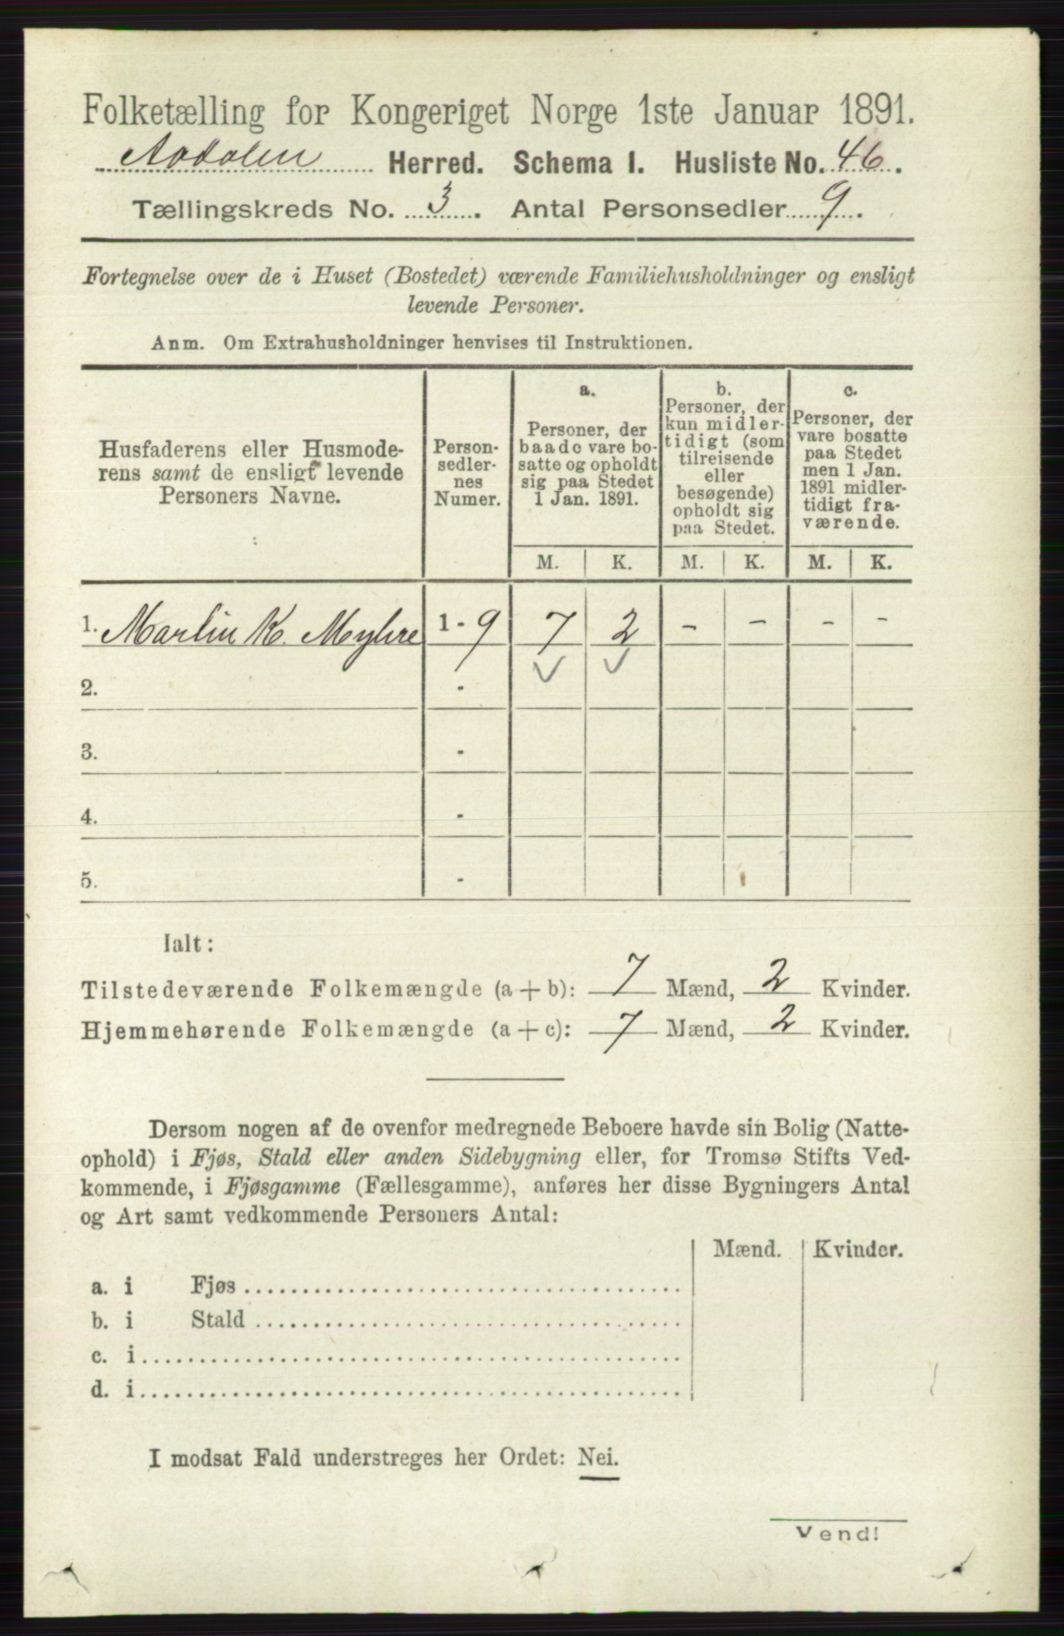 Folketælling for Kongeriget Norge 1ste Januar 1891.
Aadalen Herred. Schema I. Husliste No. 46.
Tællingskreds No. 3. Antal Personsedler 9.
Fortegnelse over de i Huset (Bostedet) værende Familiehusholdninger og ensligt
levende Personer.
Anm. Om Extrahusholdninger henvises til Instruktionen.
Husfaderens eller Husmode-
rens samt de ensligt levende
Personers Navne.
Person-
sedler-
nes
Numer.
a.
Personer, der
baade vare bo-
satte og opholdt
sig paa Stedet
1 Jan. 1891.
b.
Personer, der
kun midler-
tidigt (som
tilreisende
eller
besøgende)
opholdt sig
paa Stedet.
c.
Personer, der
vare bosatte
paa Stedet
men 1 Jan.
1891 midler-
tidigt fra-
værende.
M. K. M. K. M. K.
1. Martin K. Myhre 1 - 9 7 2 - - - -
2. -
3. -
4. -
5. -
Ialt:
Tilstedeværende Folkemængde (a + b): 7 Mænd, 2 Kvinder.
Hjemmehørende Folkemængde (a + c): 7 Mænd, 2 Kvinder.
Dersom nogen af de ovenfor medregnede Beboere havde sin Bolig (Natte-
ophold) i Fjøs, Stald eller anden Sidebygning eller, for Tromsø Stifts Ved-
kommende, i Fjøsgamme (Fællesgamme), anføres her disse Bygningers Antal
og Art samt vedkommende Personers Antal:
Mænd. Kvinder.
a. i Fjøs
b. i Stald
c. i
d. i
I modsat Fald understreges her Ordet: Nei.
Vend!